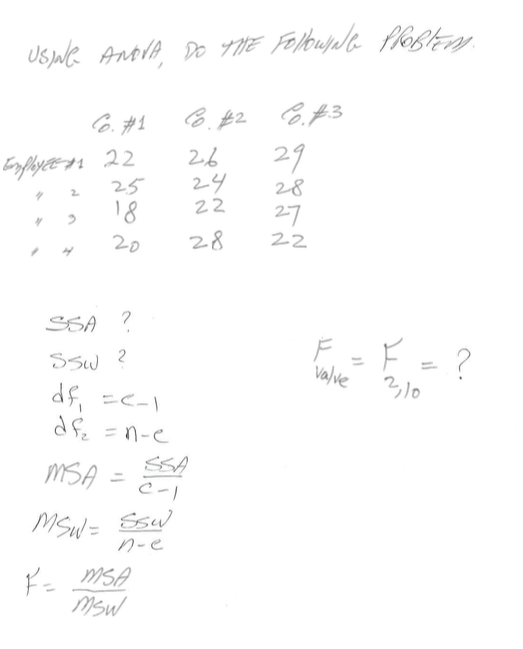 USING ANOVA, DO THE FOllOWING PROBlEM.
Co. #1 Co. #2 Co. #3
EmployEE #1 22 26 29
" 2 25 24 28
" 3 18 22 27
" 4 20 28 22
SSA ?
SSW ?
df₁ = c-1
df₂ = n-c
MSA = SSA / c-1
MSW = SSW / n-c
F = MSA / MSW
F Value = F 2,10 = ?